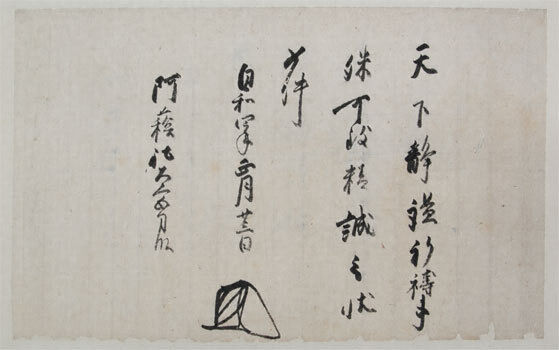 天下静謐祈禱事
殊可致精誠之状
如件
貞和 月廿三日
阿蘇社大宮司殿